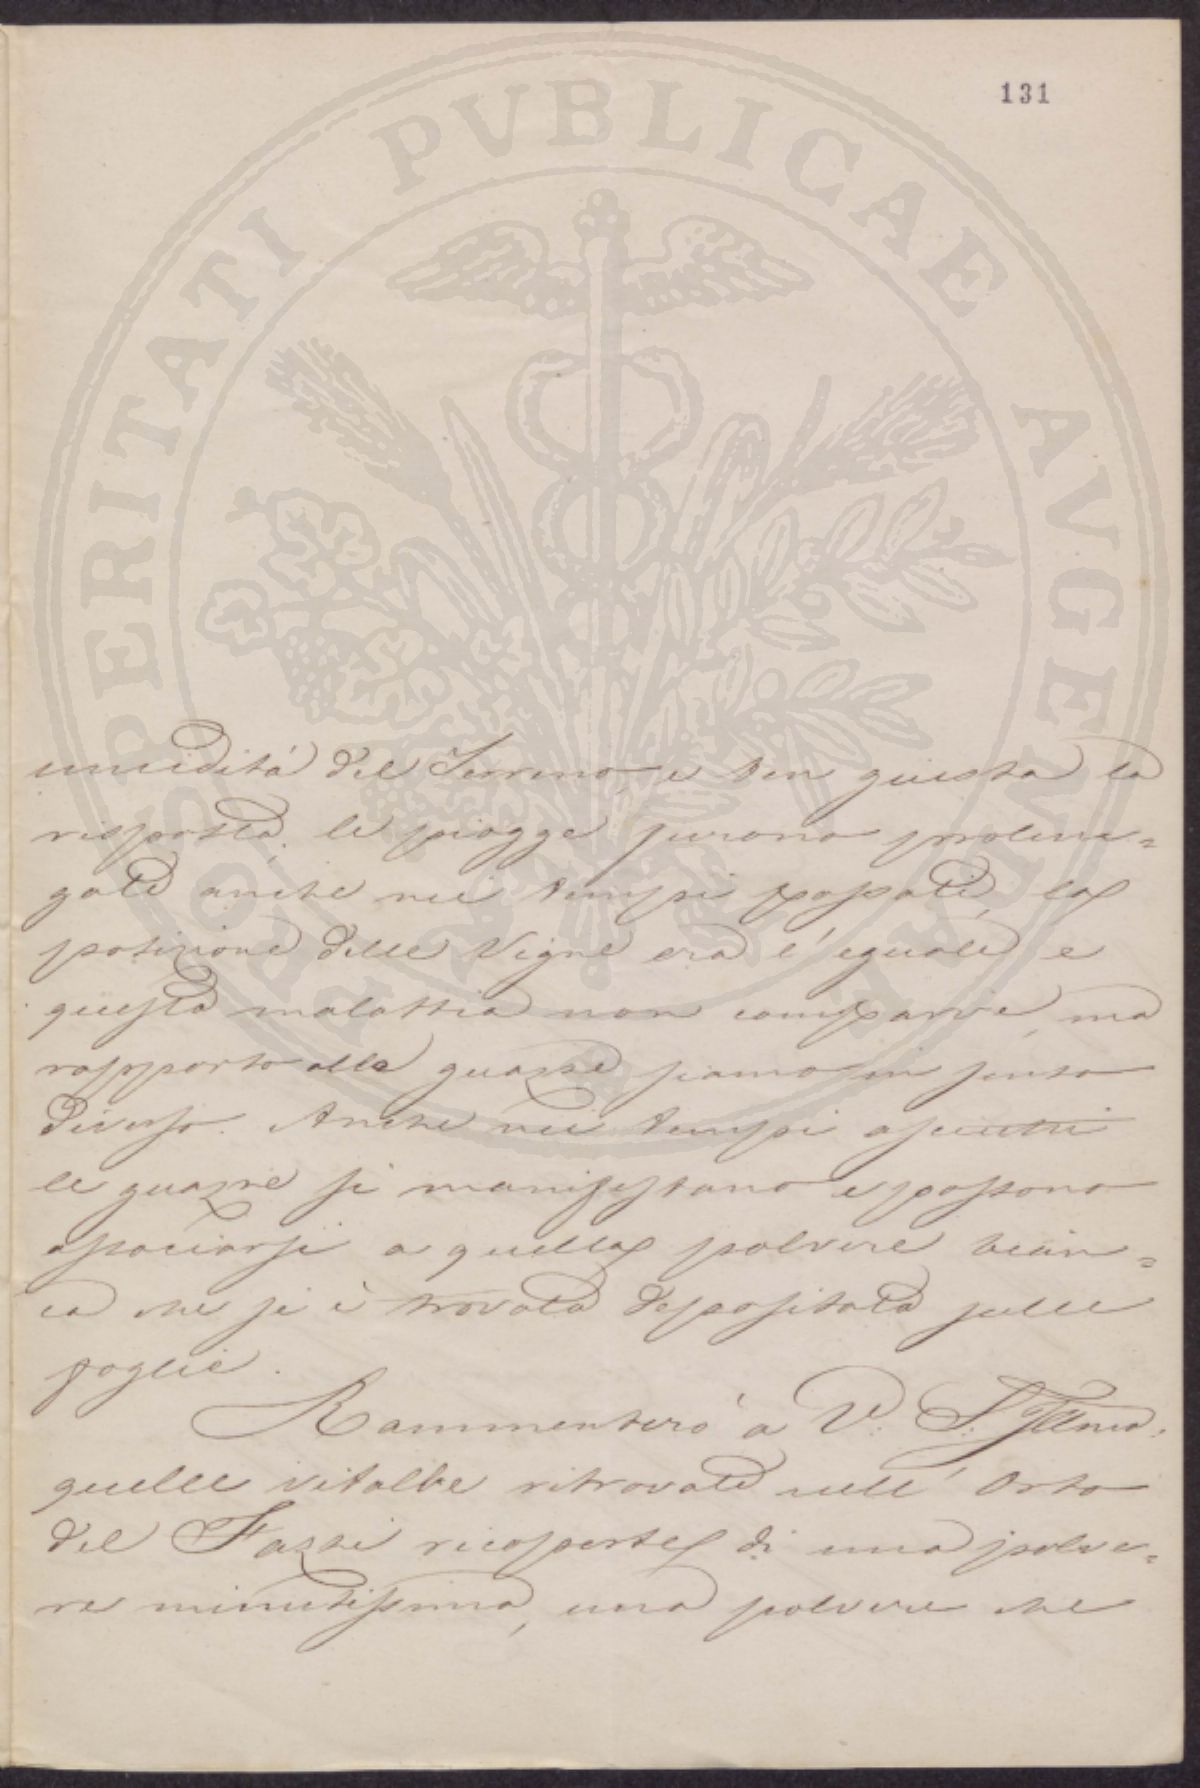 131
PROSPERITATI PVBLICAE AVGENDAE
umiditá del Terreno, e ben giusta la
risposta, le piogge furono prolun=
gate anche nei tempi passati, la
posizione delle Vigne era l'eguale, e
questa malattia non comparve, ma
rapporto alle guazze siamo in punto
diverso. Anche nei tempi asciutti
le guazze si manifestano e possono
associarsi a quella polvere bian=
ca che si è trovata depositata sulle
foglie.
Rammenteró a V: S: Illma:
quelle vitalbe ritrovate nell' Orto
del Fazzi ricoperte di una polve=
re minutissima, una polvere che